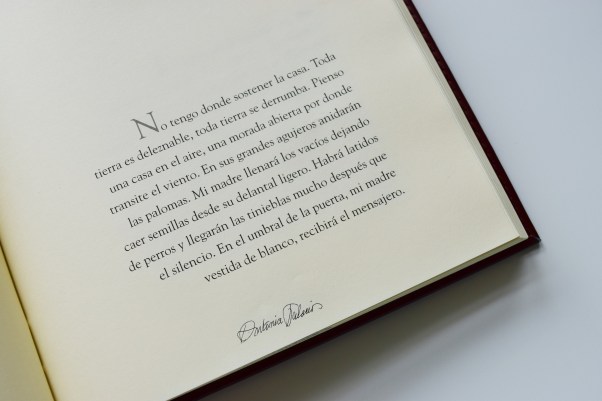 No tengo donde sostener la casa. Toda
tierra es deleznable, toda tierra se derrumba. Pienso
una casa en el aire, una morada abierta por donde
transite el viento. En sus grandes agujeros anidarán
las palomas. Mi madre llenará los vacíos dejando
caer semillas desde su delantal ligero. Habrá latidos
de perros y llegarán las tinieblas mucho después que
el silencio. En el umbral de la puerta, mi madre
vestida de blanco, recibirá el mensajero.
Antonia